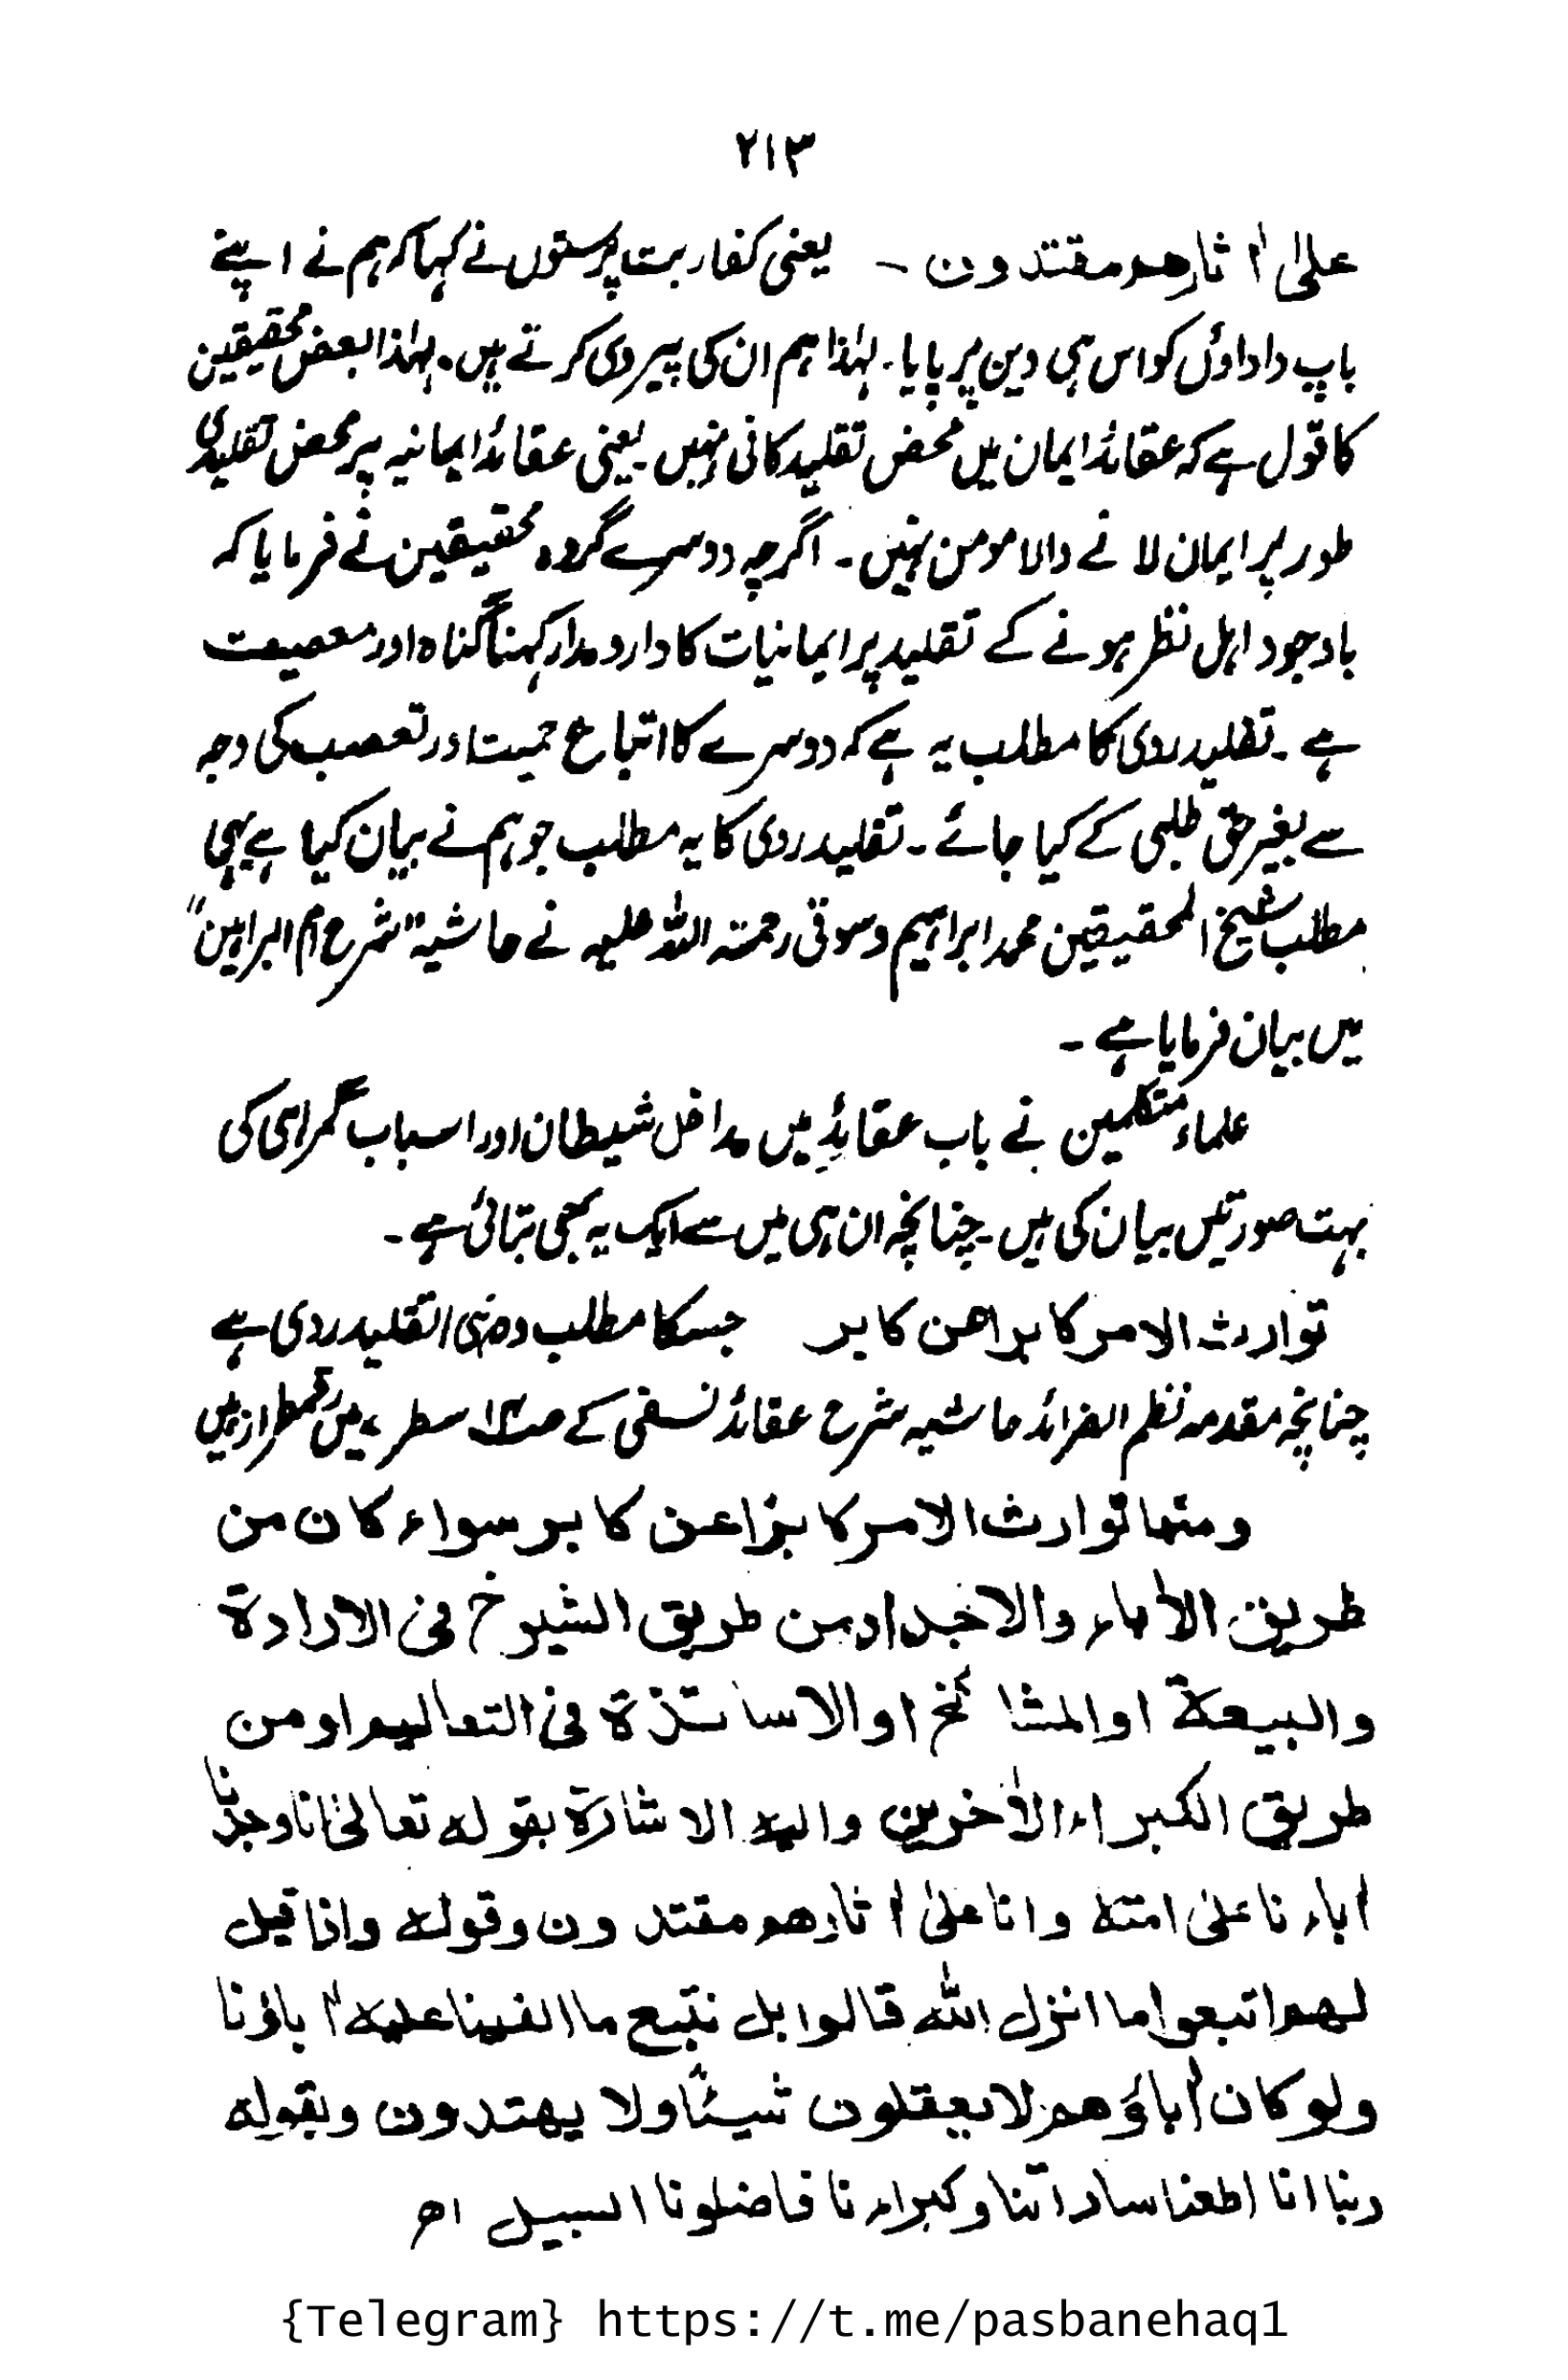 ۲۱۳
علیٰ اٰثارھم مقتدون ۔ یعنی کفار بت پرستوں نے کہا کہ ہم نے اپنے
باپ داداؤں کو اس ہی دین پر پایا۔ لہٰذا ہم ان کی پیروی کرتے ہیں۔ لہٰذا بعض محقیقین
کا قول ہے کہ عقائد ایمان میں محض تقلید کافی نہیں۔ یعنی عقائد ایمانیہ پر محض تقلیدی
طور پر ایمان لانے والا مومن نہیں۔ اگرچہ دوسرے گروہ محقیقین نے فرمایا کہ
باوجود اہل نظر ہونے کے تقلید پر ایمانیات کا دارومدار کہنا گناہ اور معصیت
ہے۔ تقلید ردی کا مطلب یہ ہے کہ دوسرے کا اتباع حمیت اور تعصب کی وجہ
سے بغیر حق طلبی کے کیا جائے۔ تقلید ردی کا یہ مطلب جو ہم نے بیان کیا ہے یہی
مطلب شیخ المحقیقین محمد ابراہیم دسوقی رحمتہ اللہ علیہ نے حاشیہ "شرح ام البراہین"
میں بیان فرمایا ہے ۔
علماء متکلمین نے باب عقائدِ میں مداخل شیطان اور اسباب گمراہی کی
بہت صورتیں بیان کی ہیں۔ چنانچہ ان ہی میں سے ایک یہ بھی بتائی ہے۔
توارث الامر کابراھن کابر جسکا مطلب وہی التقلید ردی ہے
چنانچہ مقدمہ نظم الفرائد حاشیہ شرح عقائد نسفی کے سطر میں رقمطراز ہیں
ومنھا توارث الامر کابرًا عن کابر سواء کان من
طریق الاٰباء والاجداد من طریق الشیوخ فی الارادة
والبیعة او المشائخ او الاساتذة فی التعالیم او من
طریق الکبراء الاٰخرین والیہ الاشارة بقولہ تعالیٰ انا وجدنا
اٰباءنا علیٰ امتہ وانا علیٰ اٰثارھم مقتدون وقولہ واذا قیل
لھم اتبعوا ما انزل اللّٰہ قالوا بل نتبع ما الفینا علیہ اٰباؤنا
ولو کان اٰباؤھم لا یعقلون شیئًا ولا یھتدون وبقولہ
ربنا انا اطعنا ساداتنا وکبراءنا فاضلونا السبیل اھ
{Telegram} https://t.me/pasbanehaq1